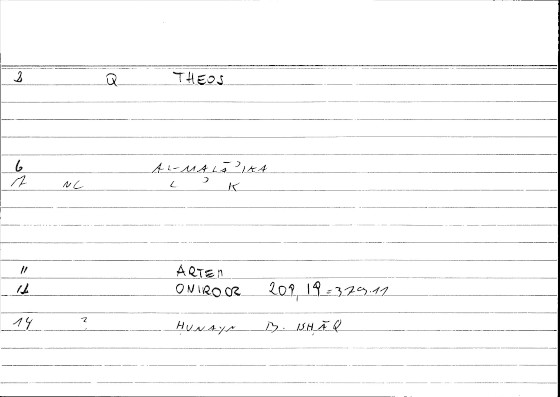 3 Q THEOS
6 AL-MALĀʾIKA
7 NL L ʾ K
11 ARTEM
12 ONIROCR 209,19 = 379.11
14 ? ḤUNAYN B. ISḤĀQ